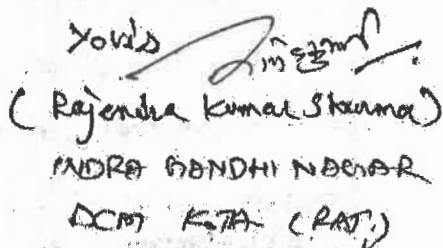 Your's
( Rajendra Kumar Sharma )
INDRA GANDHI NAGAR
DCM KOTA (RAJ.)